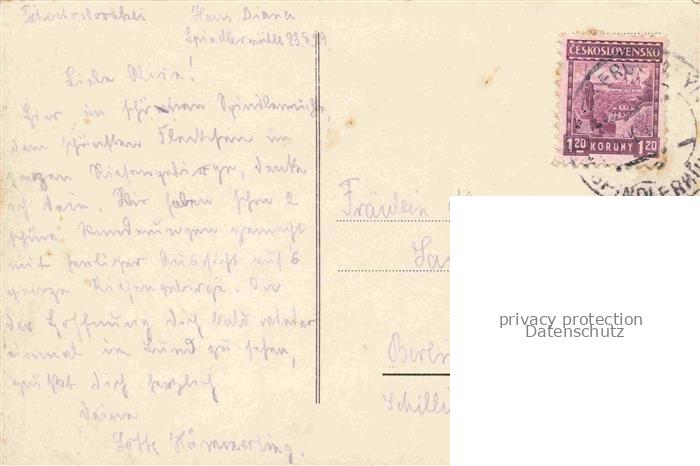 Tschechoslovakei Haus Diana
Spindlermühle 23.8.29
Liebe Mira!
Hier im schönen Spindlermühle,
dem schönsten Fleckchen im
ganzen Riesengebirge, denke
ich dein. Wir haben schon 2
schöne Wanderungen gemacht
mit herrlicher Aussicht auf's
ganze Riesengebirge. In
der Hoffnung dich bald wieder
einmal im Bund zu sehen,
grüßt dich herzlich
deine
Lotte Kämmerling.
ČESKOSLOVENSKO
1.20 KORUNY 1.20
SPINDLERMÜ
Fräulein
Berlin
Schilli
privacy protection
Datenschutz